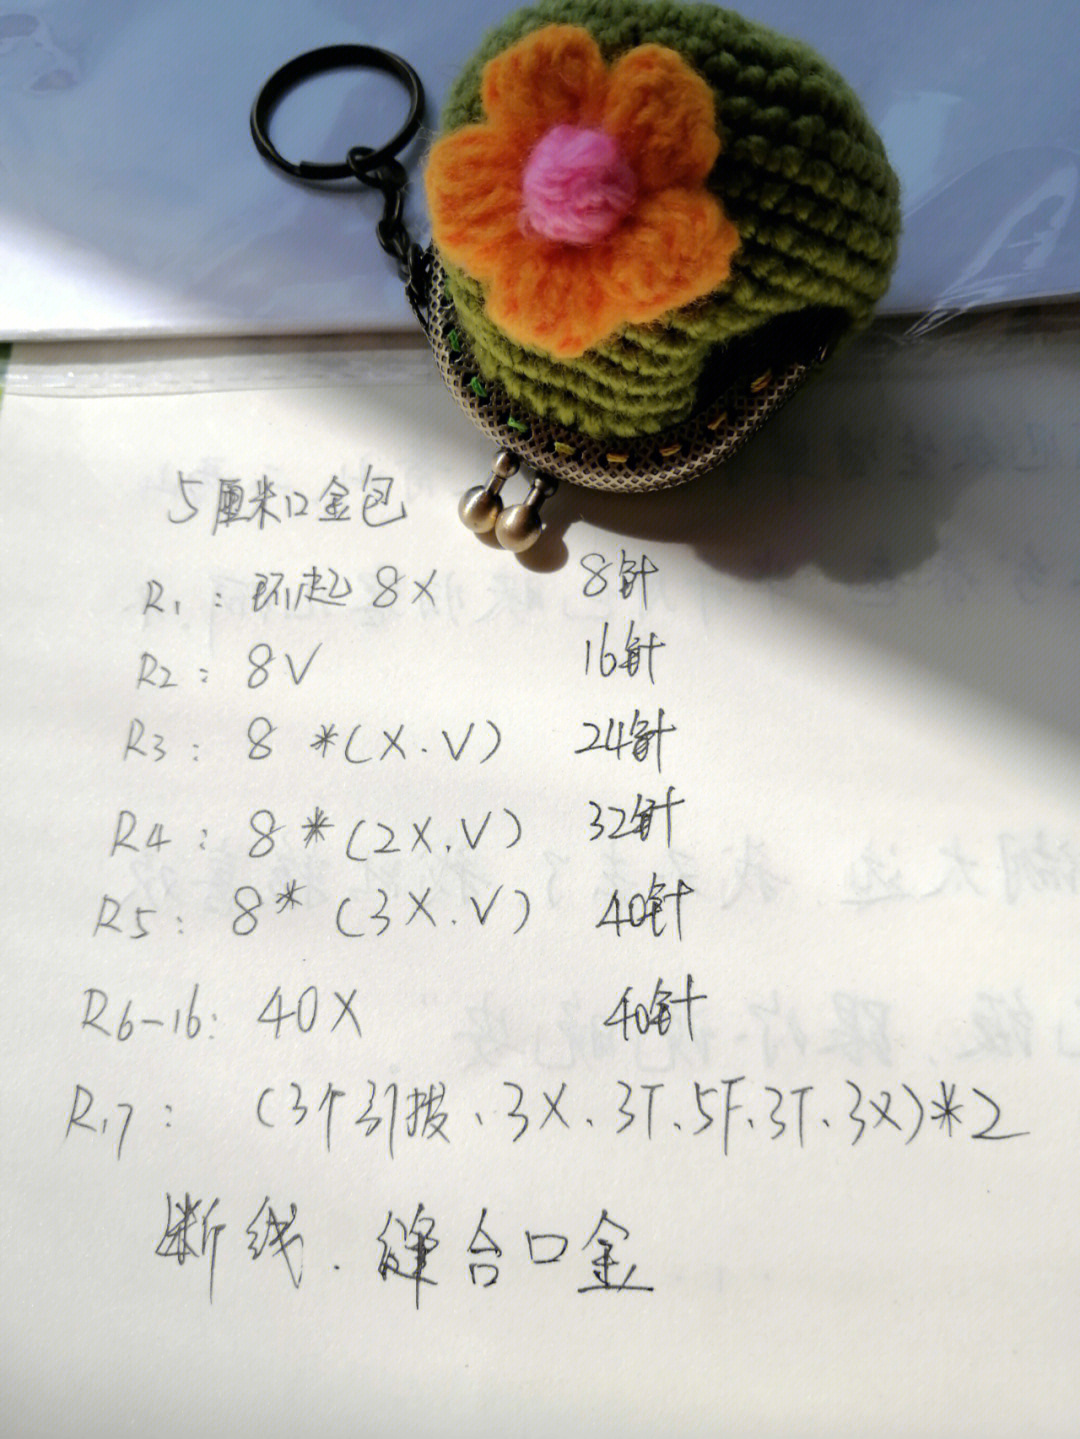 5厘米口金包
R1：环起8X 8针
R2：8V 16针
R3：8*(X.V) 24针
R4：8*(2X.V) 32针
R5：8*(3X.V) 40针
R6-16：40X 40针
R17：(3个引拔、3X、3T、5F、3T、3X)*2
断线.缝合口金